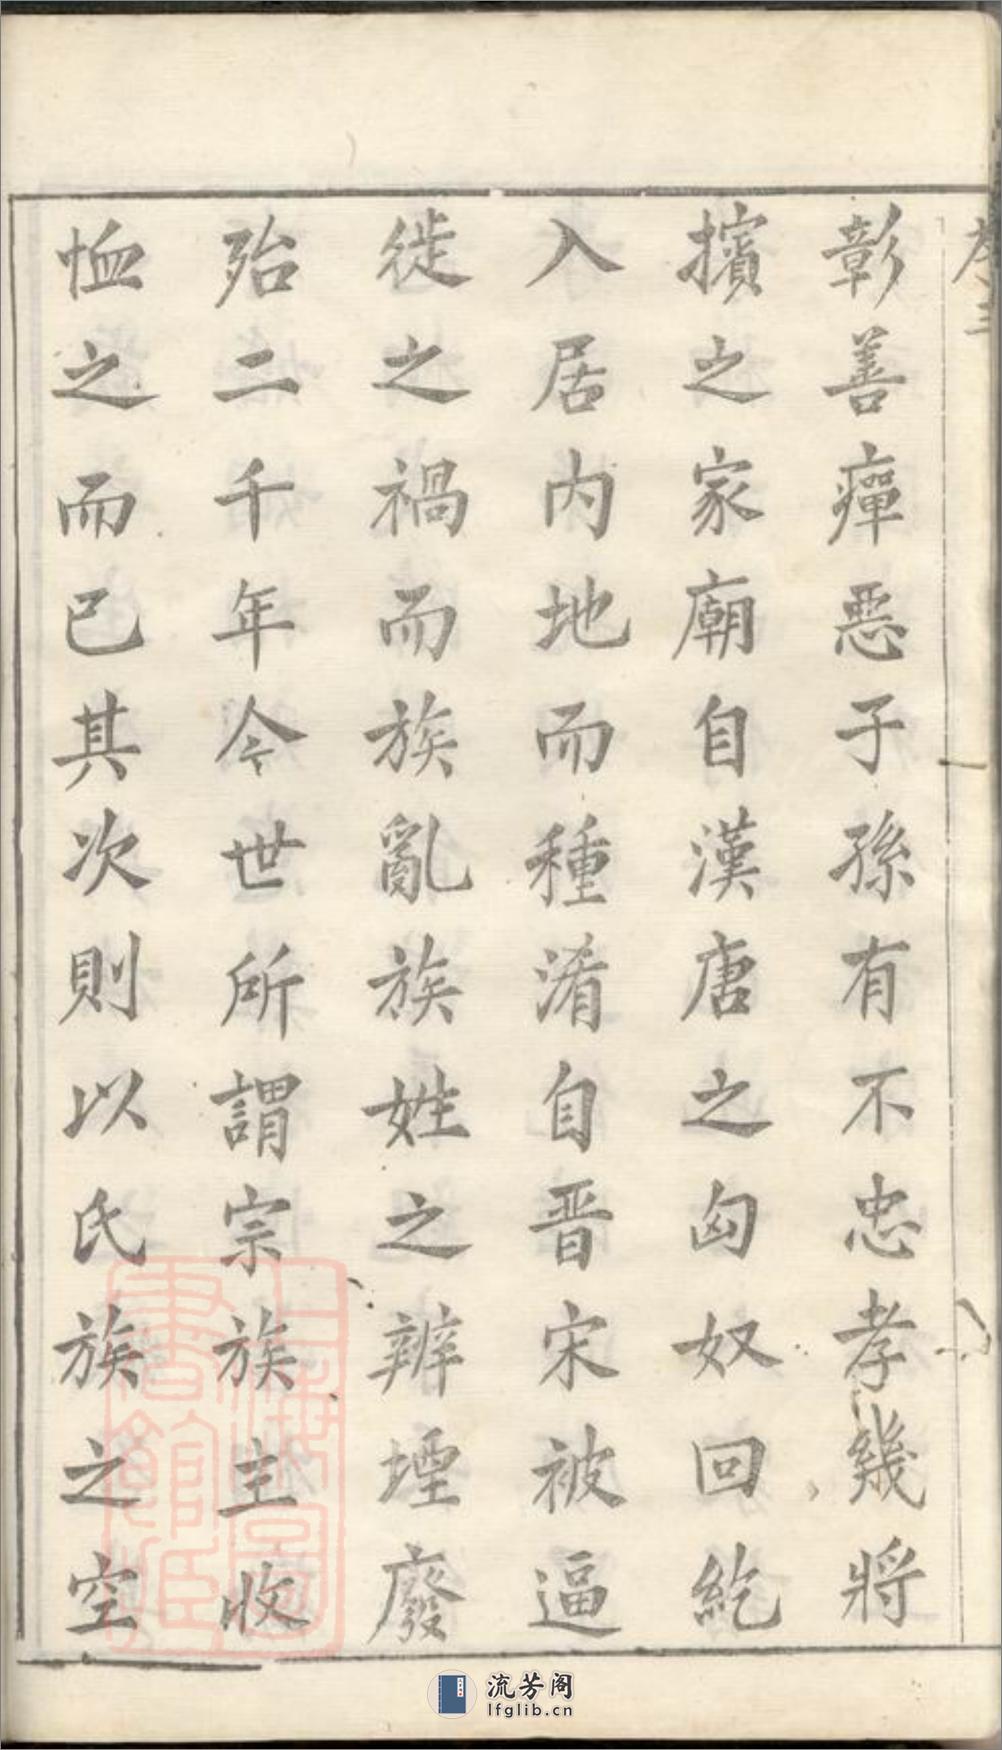 彰善癉惡子孫有不忠孝幾將
擯之家廟自漢唐之匈奴回紇
入居內地而種淆自晉宋被逼
徙之禍而族亂族姓之辨堙廢
殆二千年今世所謂宗族主收
恤之而已其次則以氏族之空
上海圖書館藏
流芳阁
lfglib.cn